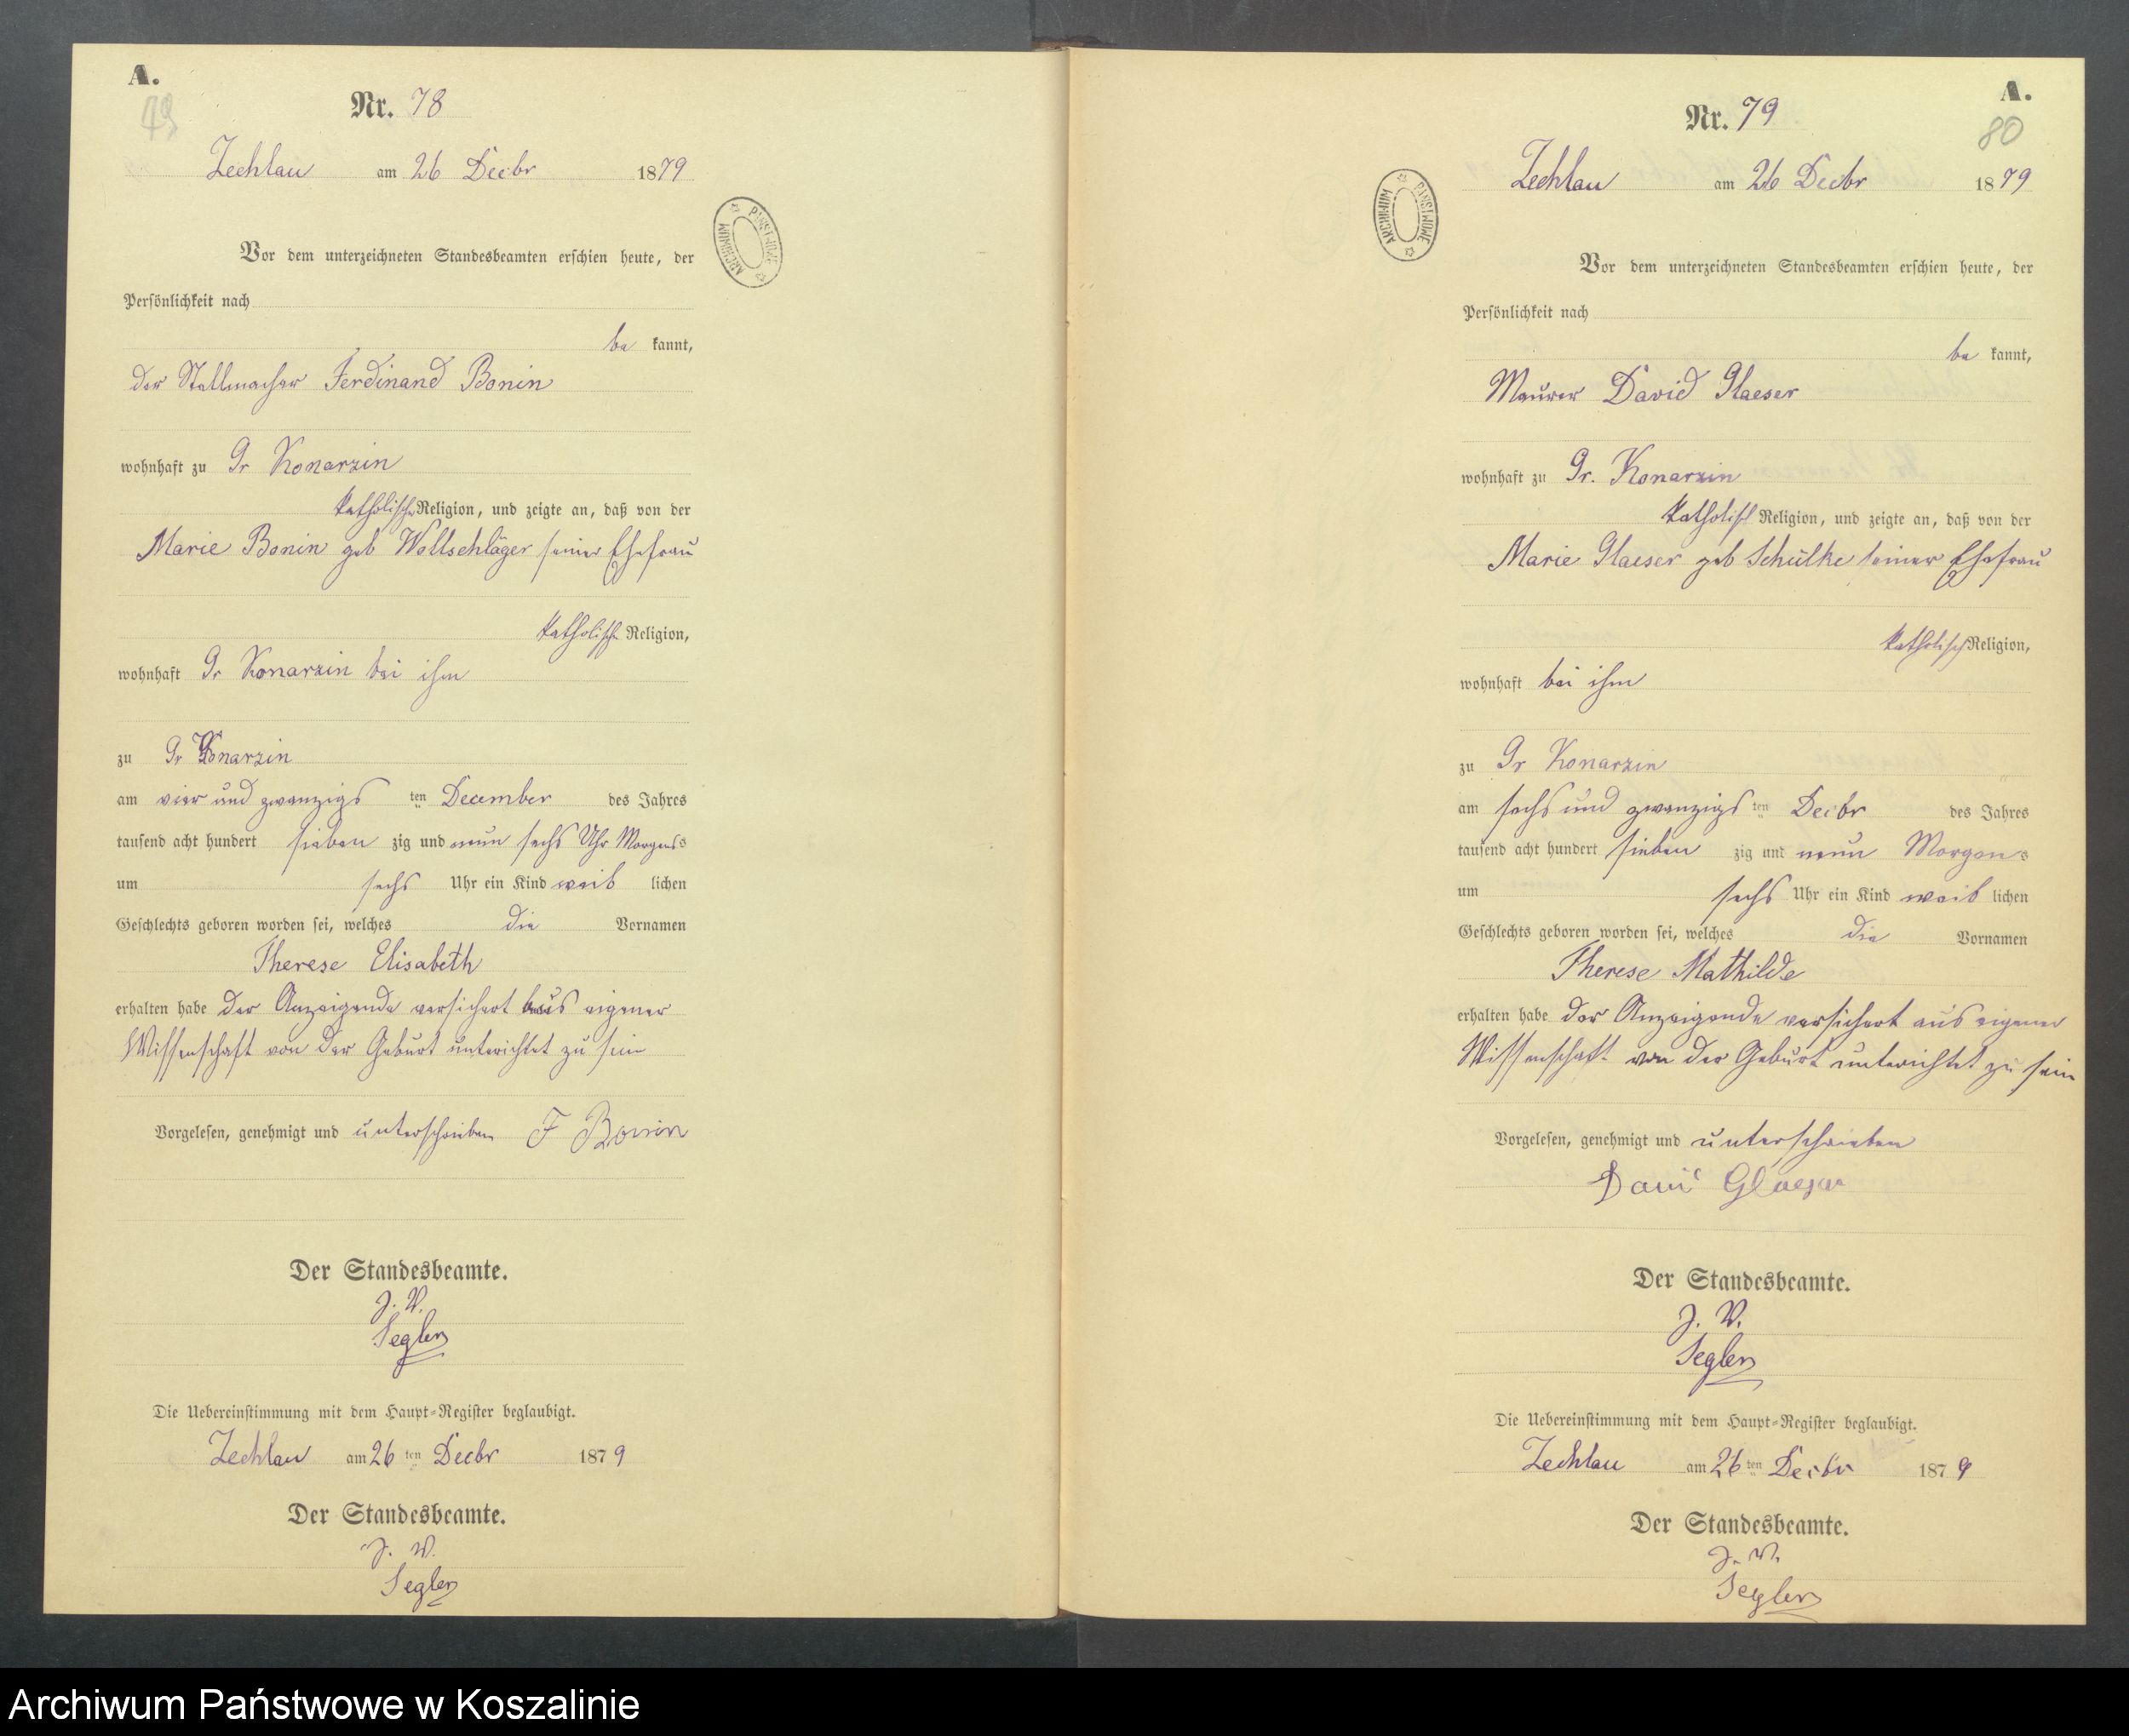 A.
79
Nr. 78
Zechlau am 26 Decbr 1879
Vor dem unterzeichneten Standesbeamten erschien heute, der
Persönlichkeit nach
be kannt,
der Stellmacher Ferdinand Bonin
wohnhaft zu Gr Konarzin
katholischer Religion, und zeigte an, daß von der
Marie Bonin geb Wollschläger seiner Ehefrau
katholischer Religion,
wohnhaft Gr Konarzin bei ihm
zu Gr Konarzin
am vier und zwanzigs ten December des Jahres
tausend acht hundert sieben zig und neun sechs Uhr Morgens
um sechs Uhr ein Kind weib lichen
Geschlechts geboren worden sei, welches die Vornamen
Therese Elisabeth
erhalten habe der Anzeigende versichert aus eigener
Wissenschaft von der Geburt unterichtet zu sein
Vorgelesen, genehmigt und unterschrieben F Bonin
Der Standesbeamte.
J. V.
Segler
Die Uebereinstimmung mit dem Haupt-Register beglaubigt.
Zechlau am 26 ten Decbr 1879
Der Standesbeamte.
J. V.
Segler
ARCHIWUM PAŃSTWOWE
A.
80
Nr. 79
Zechlau am 26 Decbr 1879
Vor dem unterzeichneten Standesbeamten erschien heute, der
Persönlichkeit nach
be kannt,
Maurer David Glaeser
wohnhaft zu Gr. Konarzin
katholisch Religion, und zeigte an, daß von der
Marie Glaeser geb Schülke seiner Ehefrau
katholisch Religion,
wohnhaft bei ihm
zu Gr Konarzin
am sechs und zwanzigs ten Decbr des Jahres
tausend acht hundert sieben zig und neun Morgens
um sechs Uhr ein Kind weib lichen
Geschlechts geboren worden sei, welches die Vornamen
Therese Mathilde
erhalten habe der Anzeigende versichert aus eigener
Wissenschaft von der Geburt unterichtet zu sein
Vorgelesen, genehmigt und unterschrieben
David Glaeser
Der Standesbeamte.
J. V.
Segler
Die Uebereinstimmung mit dem Haupt-Register beglaubigt.
Zechlau am 26 ten Decbr 1879
Der Standesbeamte.
J. V.
Segler
ARCHIWUM PAŃSTWOWE
Archiwum Państwowe w Koszalinie